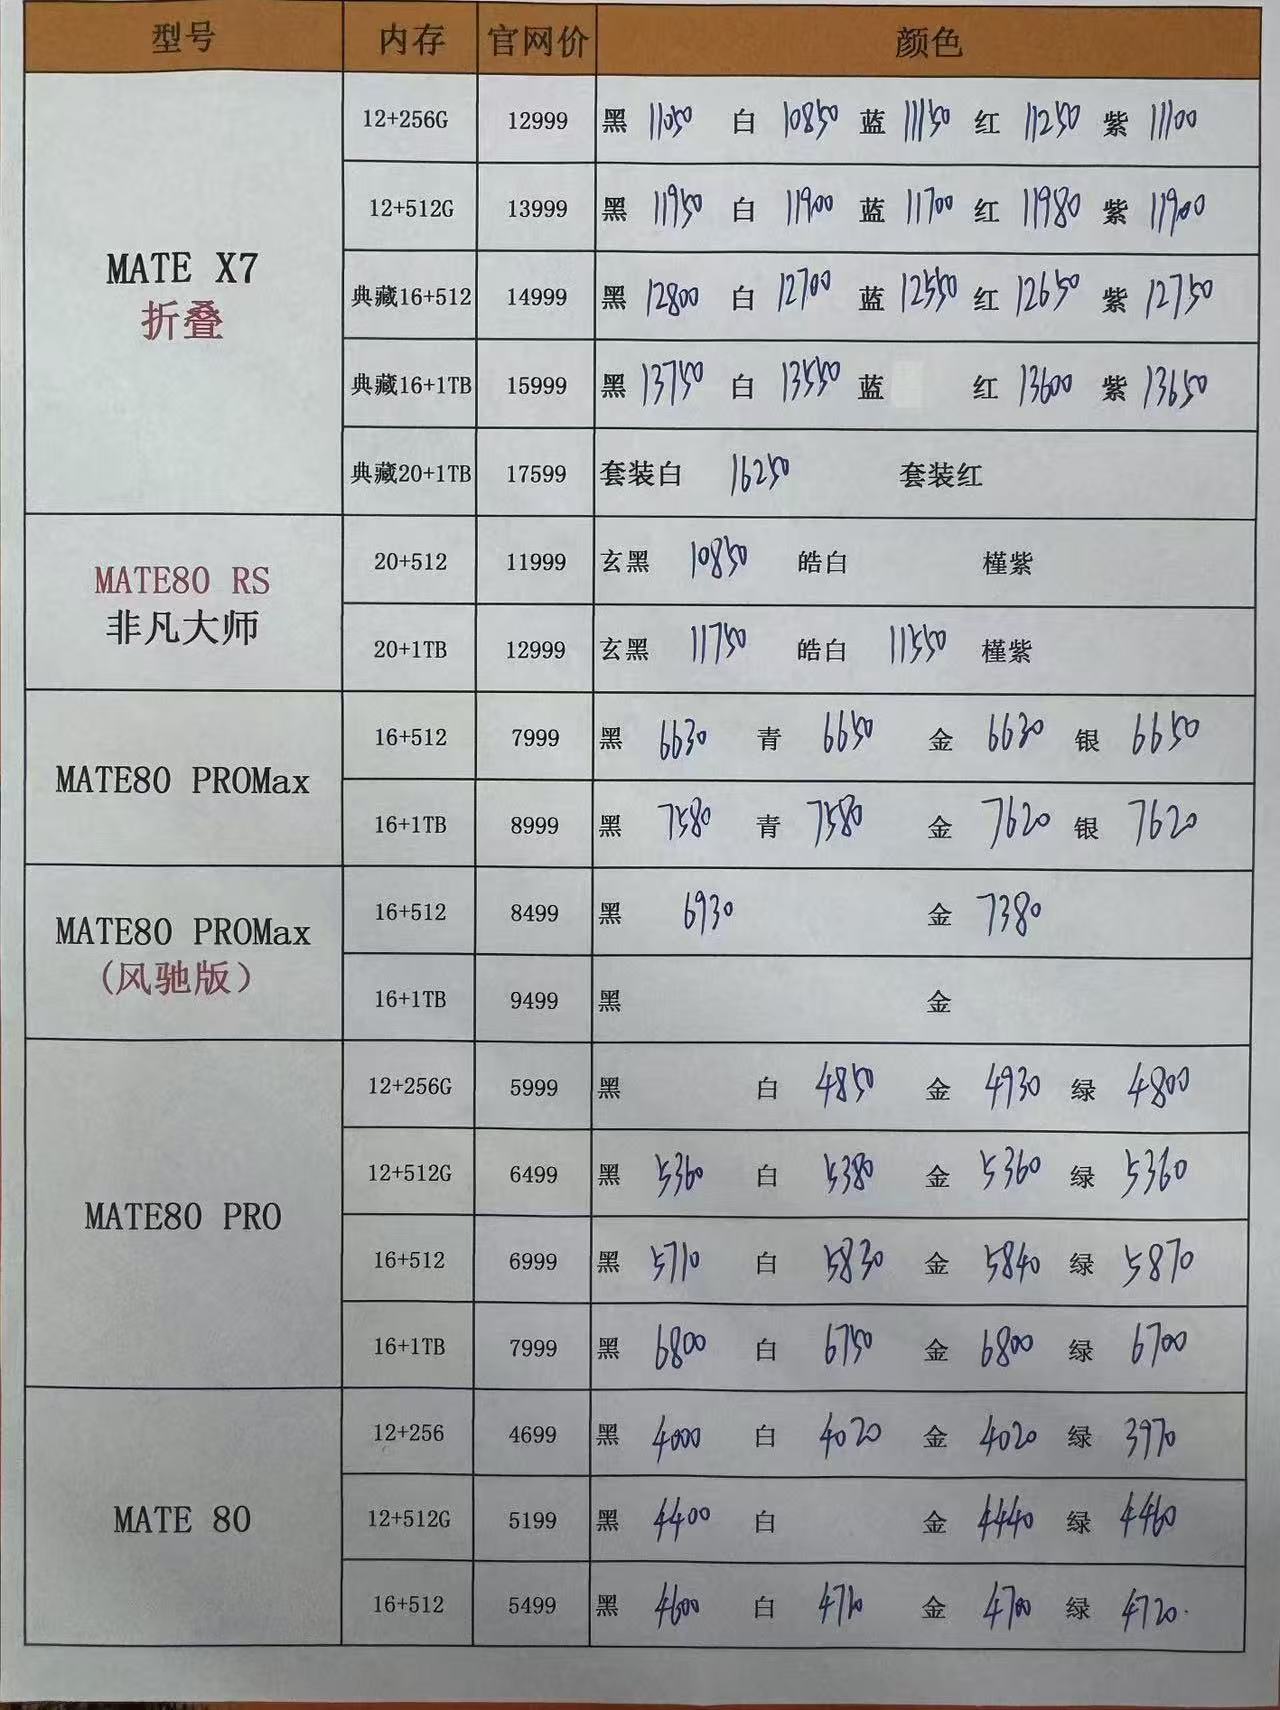 型号 内存 官网价 颜色
12+256G 12999 黑 11050 白 10850 蓝 11150 红 11250 紫 11100
12+512G 13999 黑 11950 白 11900 蓝 11700 红 11980 紫 11900
MATE X7
折叠
典藏16+512 14999 黑 12800 白 12700 蓝 12550 红 12650 紫 12750
典藏16+1TB 15999 黑 13750 白 13550 蓝 红 13600 紫 13650
典藏20+1TB 17599 套装白 16250 套装红
MATE80 RS
非凡大师
20+512 11999 玄黑 10850 皓白 槿紫
20+1TB 12999 玄黑 11750 皓白 11550 槿紫
MATE80 PROMax
16+512 7999 黑 6630 青 6650 金 6630 银 6650
16+1TB 8999 黑 7580 青 7580 金 7620 银 7620
MATE80 PROMax
(风驰版)
16+512 8499 黑 6930 金 7380
16+1TB 9499 黑 金
MATE80 PRO
12+256G 5999 黑 白 4850 金 4930 绿 4800
12+512G 6499 黑 5360 白 5380 金 5360 绿 5360
16+512 6999 黑 5710 白 5830 金 5840 绿 5870
16+1TB 7999 黑 6800 白 6750 金 6800 绿 6700
MATE 80
12+256 4699 黑 4000 白 4020 金 4020 绿 3970
12+512G 5199 黑 4400 白 金 4440 绿 4460
16+512 5499 黑 4600 白 金 4700 绿 4720